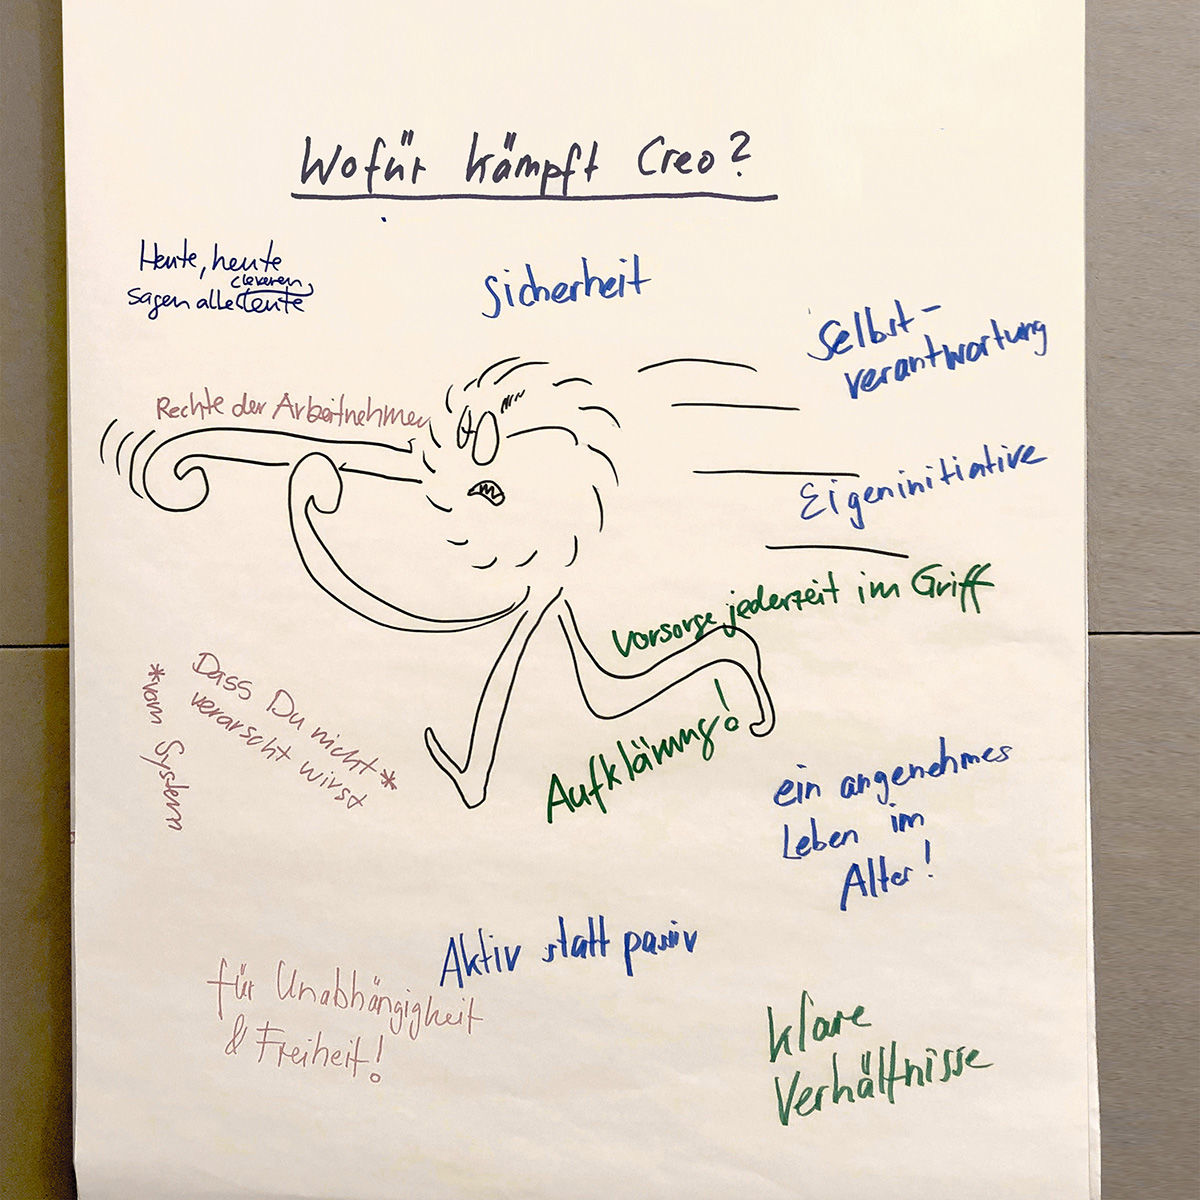 Wofür kämpft Creo?
Heute, heute
cleveren
sagen alle Leute
Sicherheit
Selbst-
verantwortung
Rechte der Arbeitnehmer
Eigeninitiative
Vorsorge jederzeit im Griff
Dass Du nicht*
verarscht wirst
*vom System
Aufklärung!
ein angenehmes
Leben im
Alter!
Aktiv statt passiv
für Unabhängigkeit
& Freiheit!
klare
Verhältnisse